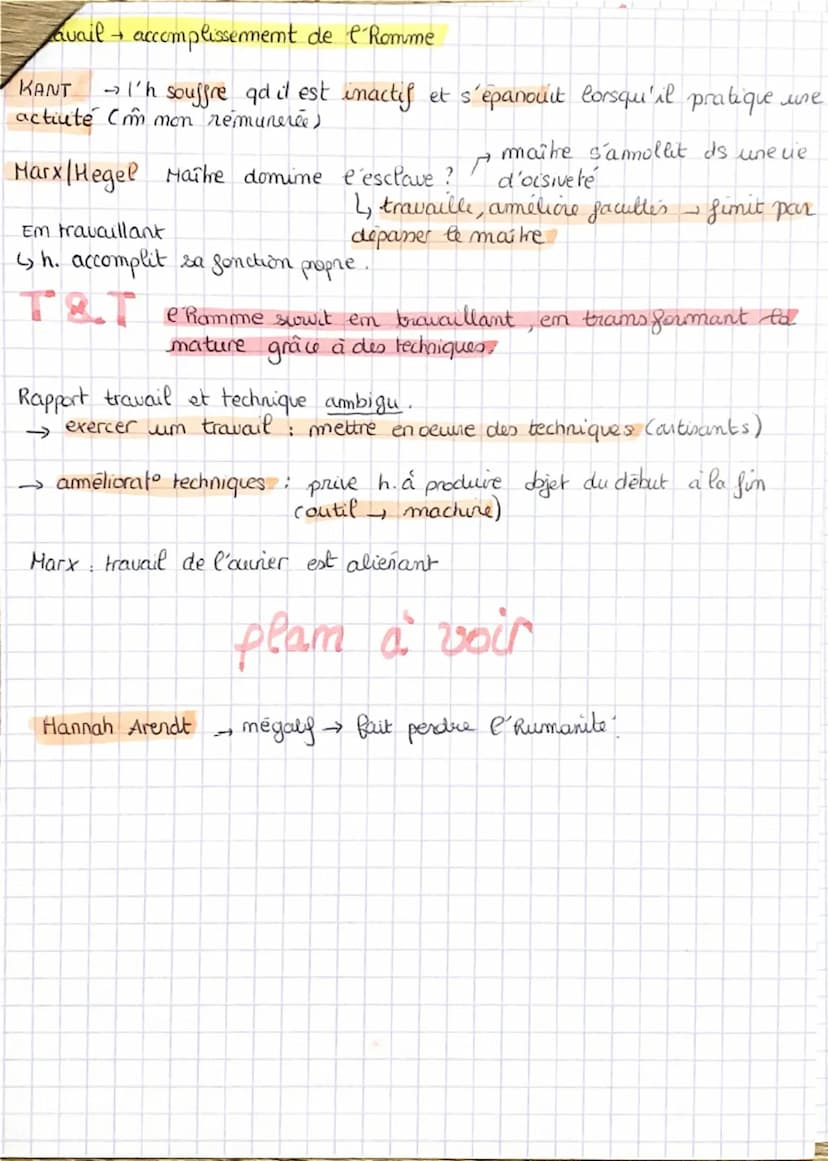 avail → accomplissement de l'Homme
KANT → l'h souffre qd il est inactif et s'épanouit lorsqu'il pratique une
activité (m̂ non rémunérée)
→ maître s'amollit ds une vie
Marx/Hegel Maître domine l'esclave ? d'oisiveté
↳ travaille, améliore facultés → finit par
En travaillant dépasser le maître
↳ h. accomplit sa fonction propre.
T & T l'homme survit en travaillant, en transformant la
nature grâce à des techniques.
Rapport travail et technique ambigu.
→ exercer un travail : mettre en oeuvre des techniques (artisants)
→ améliorat° techniques : prive h. à produire objet du début à la fin
(outil → machine)
Marx : travail de l'ouvrier est aliénant
plan à voir
Hannah Arendt → négatif → fait perdre l'humanité.